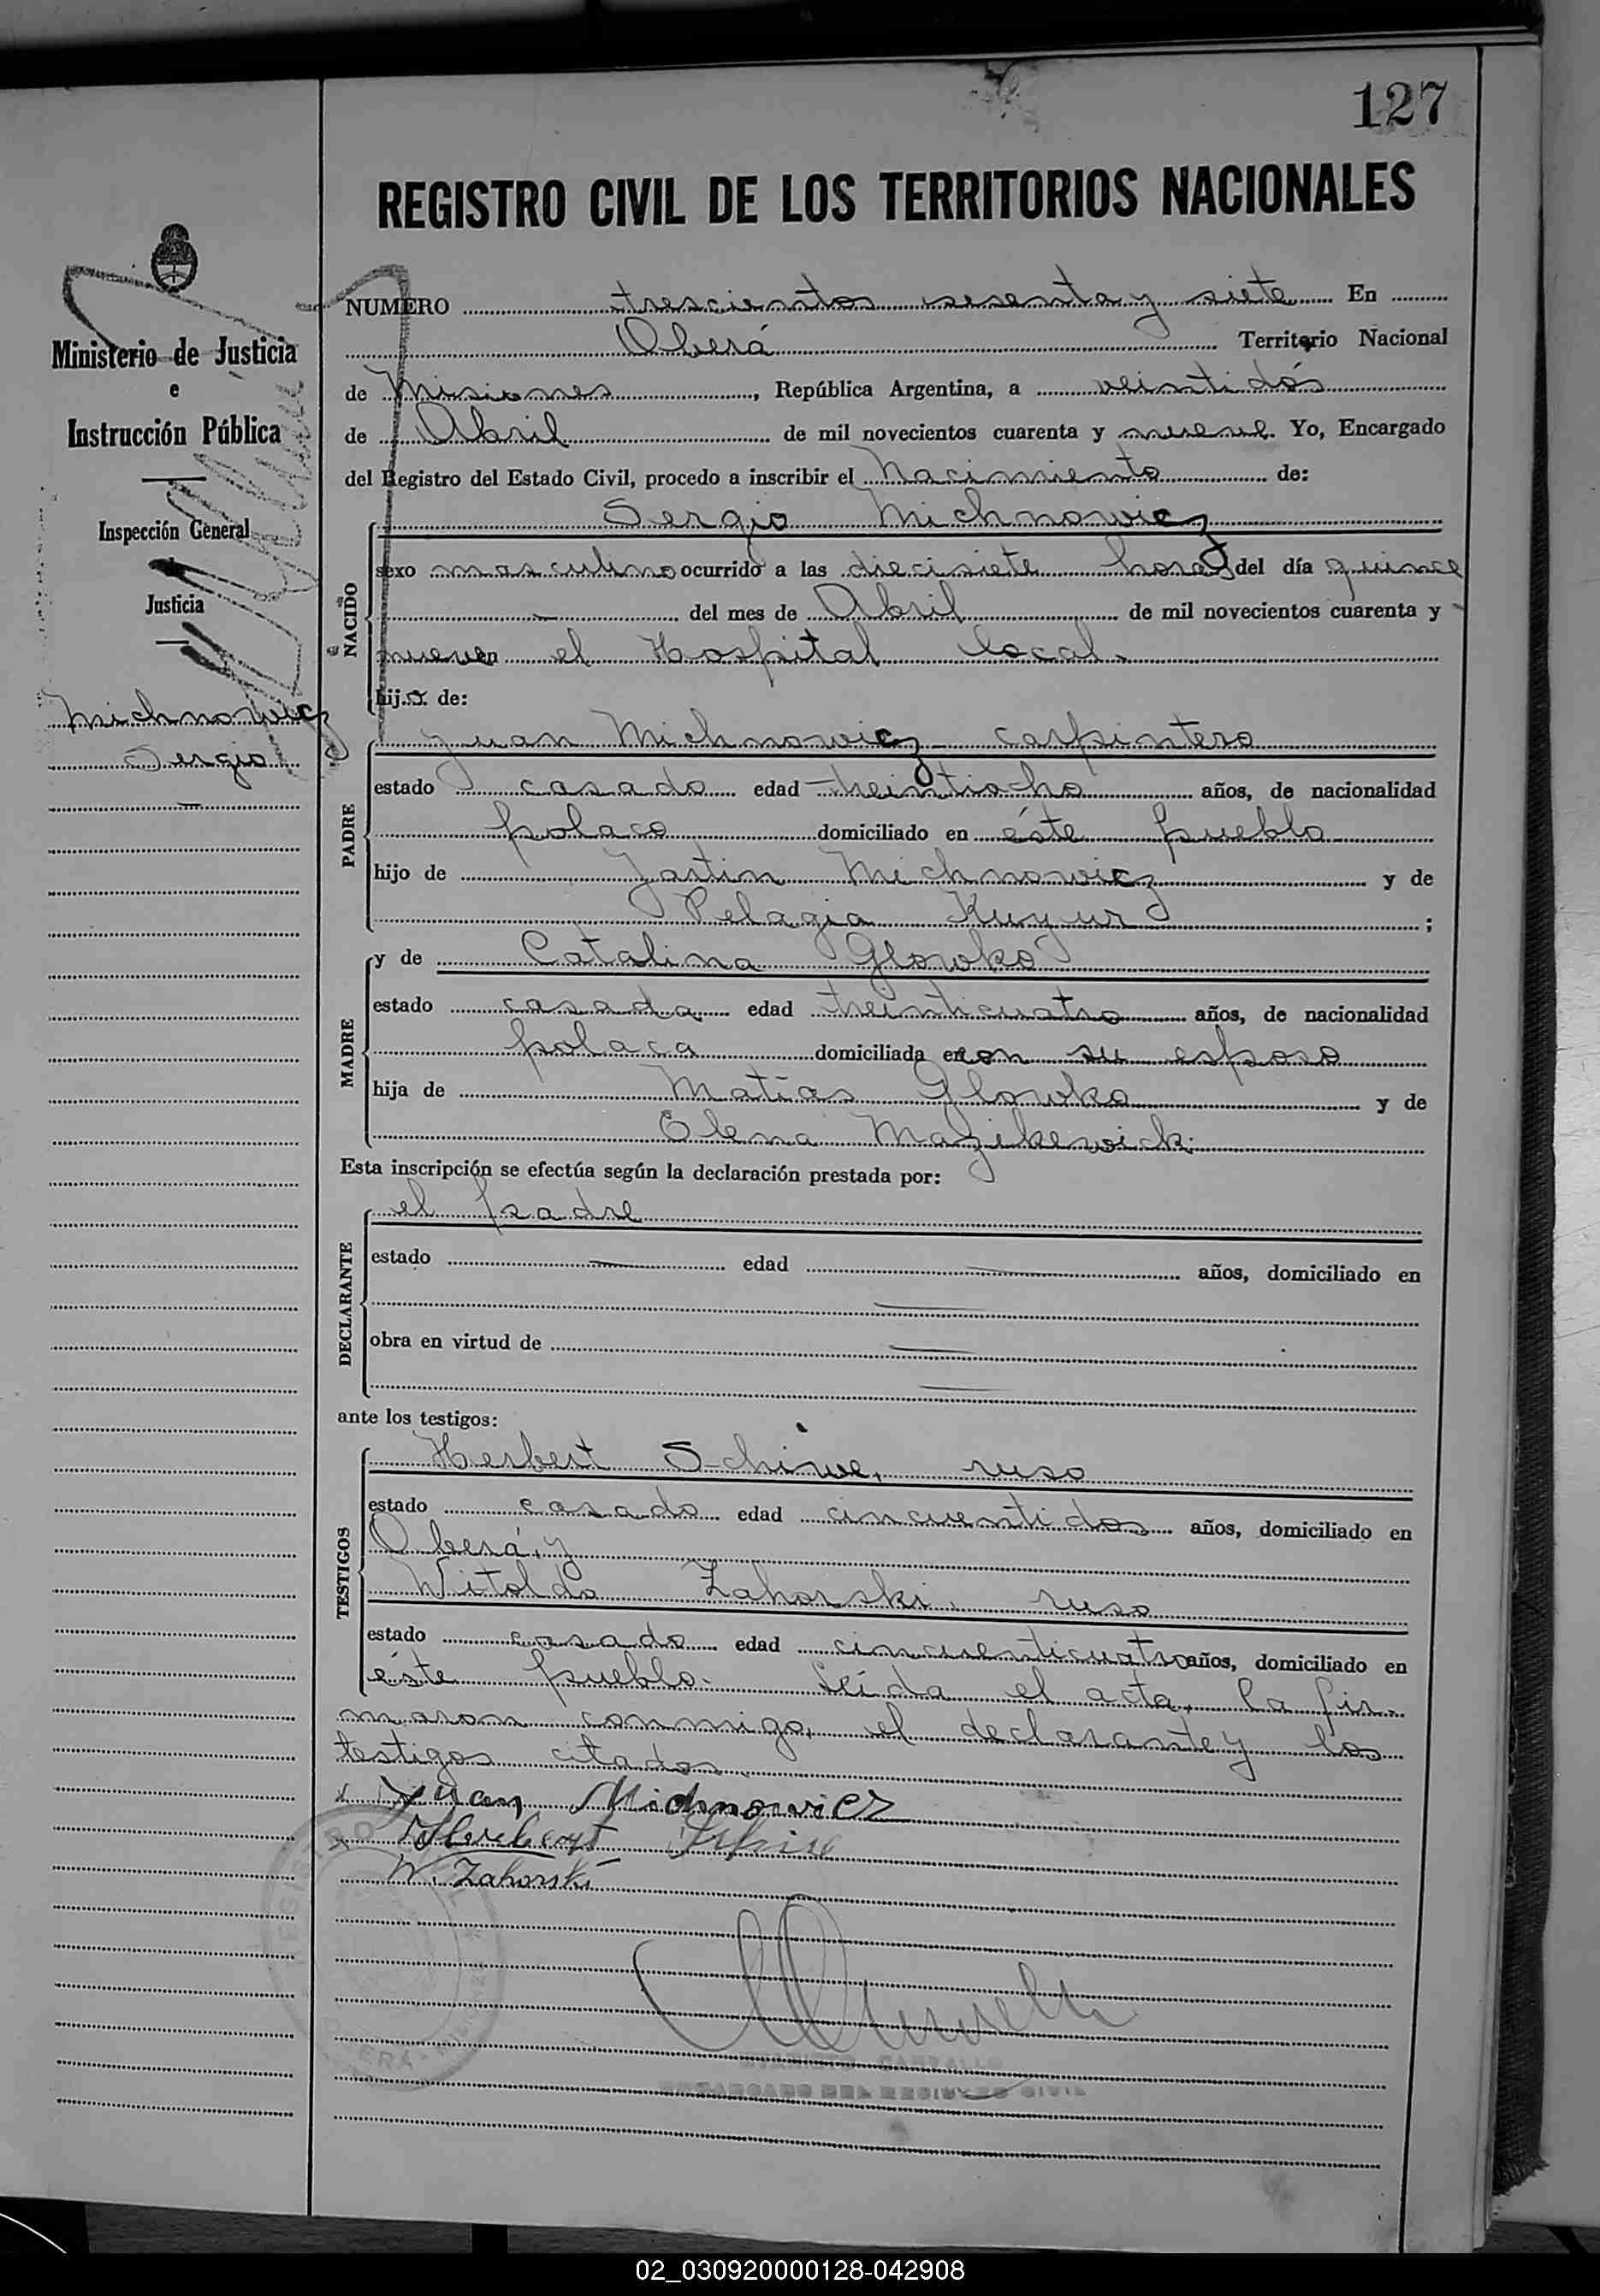 127
REGISTRO CIVIL DE LOS TERRITORIOS NACIONALES
Ministerio de Justicia
e
Instrucción Pública
Inspección General
Justicia
Michnowicz
Sergio
NUMERO trescientos sesenta y siete En
Oberá Territorio Nacional
de Misiones, República Argentina, a veintidós
de Abril de mil novecientos cuarenta y nueve. Yo, Encargado
del Registro del Estado Civil, procedo a inscribir el Nacimiento de:
Sergio Michnowicz
NACIDO
sexo masculino ocurrido a las diecisiete horas del día quince
del mes de Abril de mil novecientos cuarenta y
nueve en el Hospital local.
hijo de:
Juan Michnowicz carpintero
PADRE
estado casado edad treintiocho años, de nacionalidad
polaco domiciliado en éste pueblo
hijo de Jartin Michnowicz y de
Pelagia Kuyur ;
y de Catalina Glowko
MADRE
estado casada edad treinticuatro años, de nacionalidad
polaca domiciliada en con su esposo
hija de Matías Glowko y de
Elena Mazikewick
Esta inscripción se efectúa según la declaración prestada por:
el padre
DECLARANTE
estado edad años, domiciliado en
obra en virtud de
ante los testigos:
Herbert Schiwe, ruso
TESTIGOS
estado casado edad cincuentidos años, domiciliado en
Oberá, y
Witoldo Zahorski, ruso
estado casado edad cincuenticuatro años, domiciliado en
éste pueblo. Leída el acta, la fir-
maron conmigo, el declarante y los
testigos citados.
x Juan Michnowicz
W. Zahorski
ENCARGADO DEL REGISTRO CIVIL
02_030920000128-042908